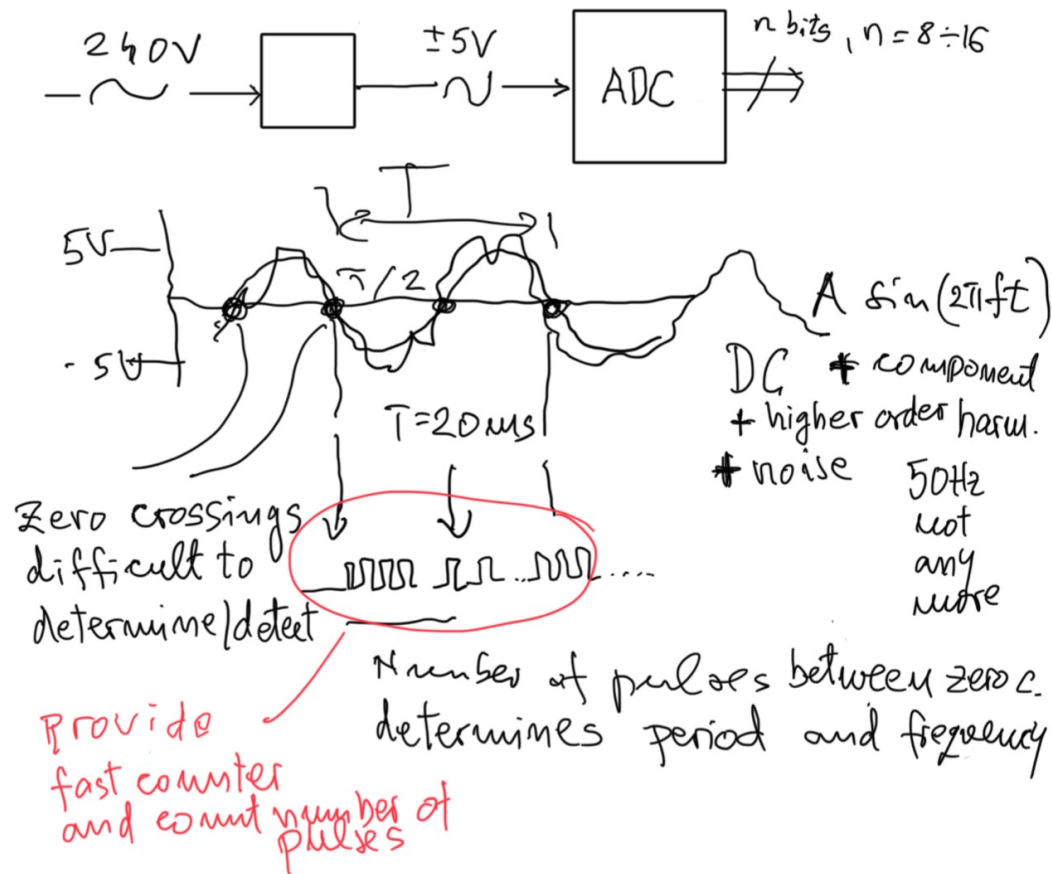 240V
±5V
ADC
n bits, n = 8÷16
T
5V
π/2
-5V
A sin(2πft)
DC + component
+ higher order harm.
+ noise
50Hz
not
any
more
T=20ms
Zero crossings
difficult to
determine/detect
Number of pulses between zero c.
determines period and frequency
Provide
fast counter
and count number of
pulses